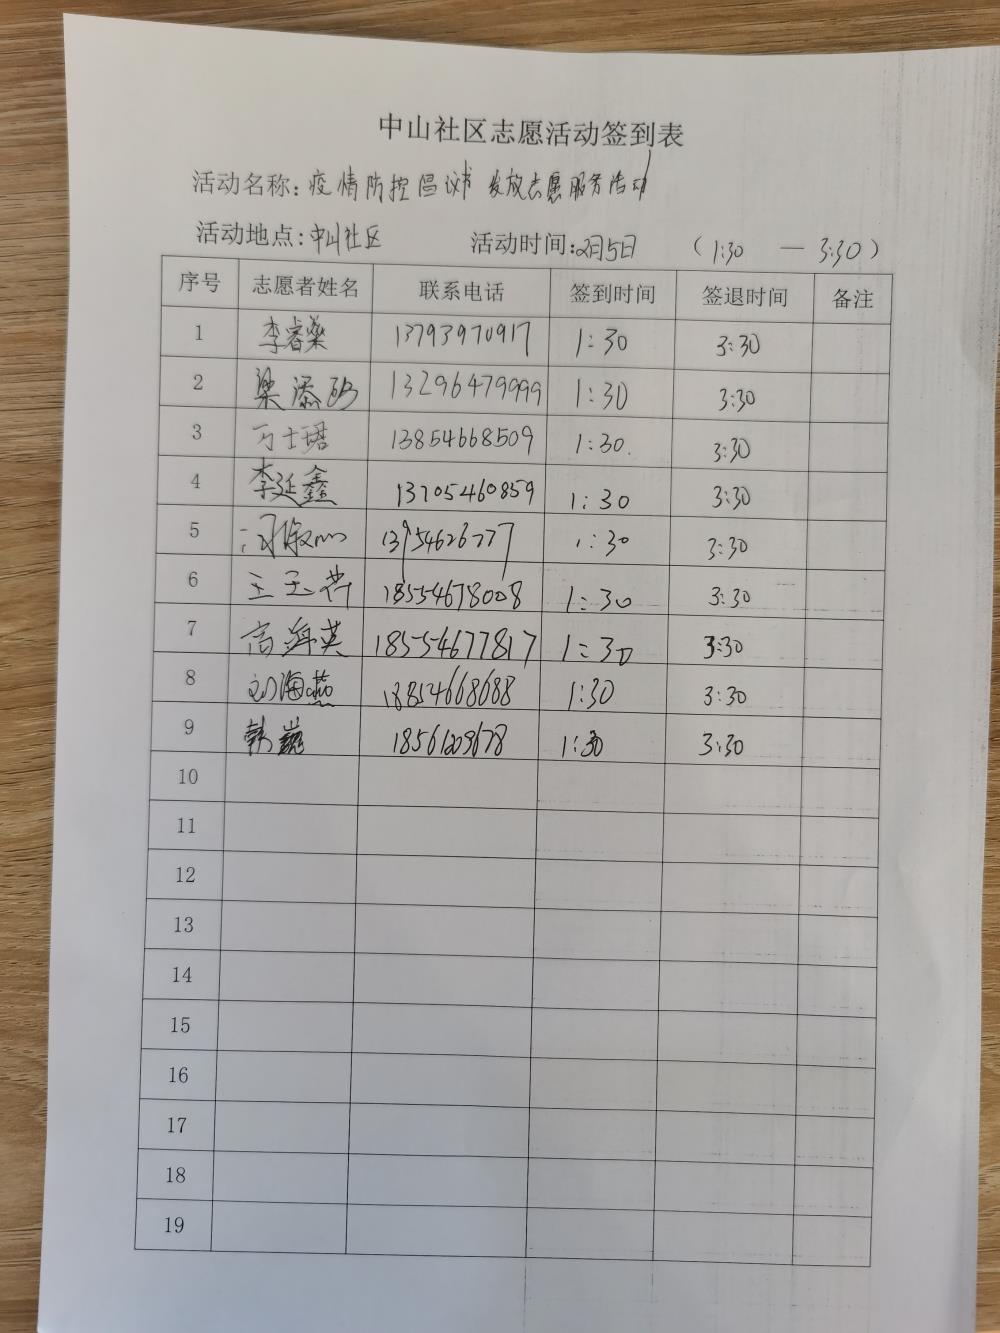 中山社区志愿活动签到表
活动名称：疫情防控倡议书发放志愿服务活动
活动地点：中山社区 活动时间：2月5日 （1:30 — 3:30）
序号 志愿者姓名 联系电话 签到时间 签退时间 备注
1 李睿燊 13793970917 1:30 3:30
2 梁添 13296479999 1:30 3:30
3 万士琚 13854668509 1:30 3:30
4 李延鑫 13705460859 1:30 3:30
5 13954626777 1:30 3:30
6 王玉 18554678008 1:30 3:30
7 高 英 18554677817 1:30 3:30
8 刘海燕 18854668688 1:30 3:30
9 韩巍 18561209678 1:30 3:30
10
11
12
13
14
15
16
17
18
19